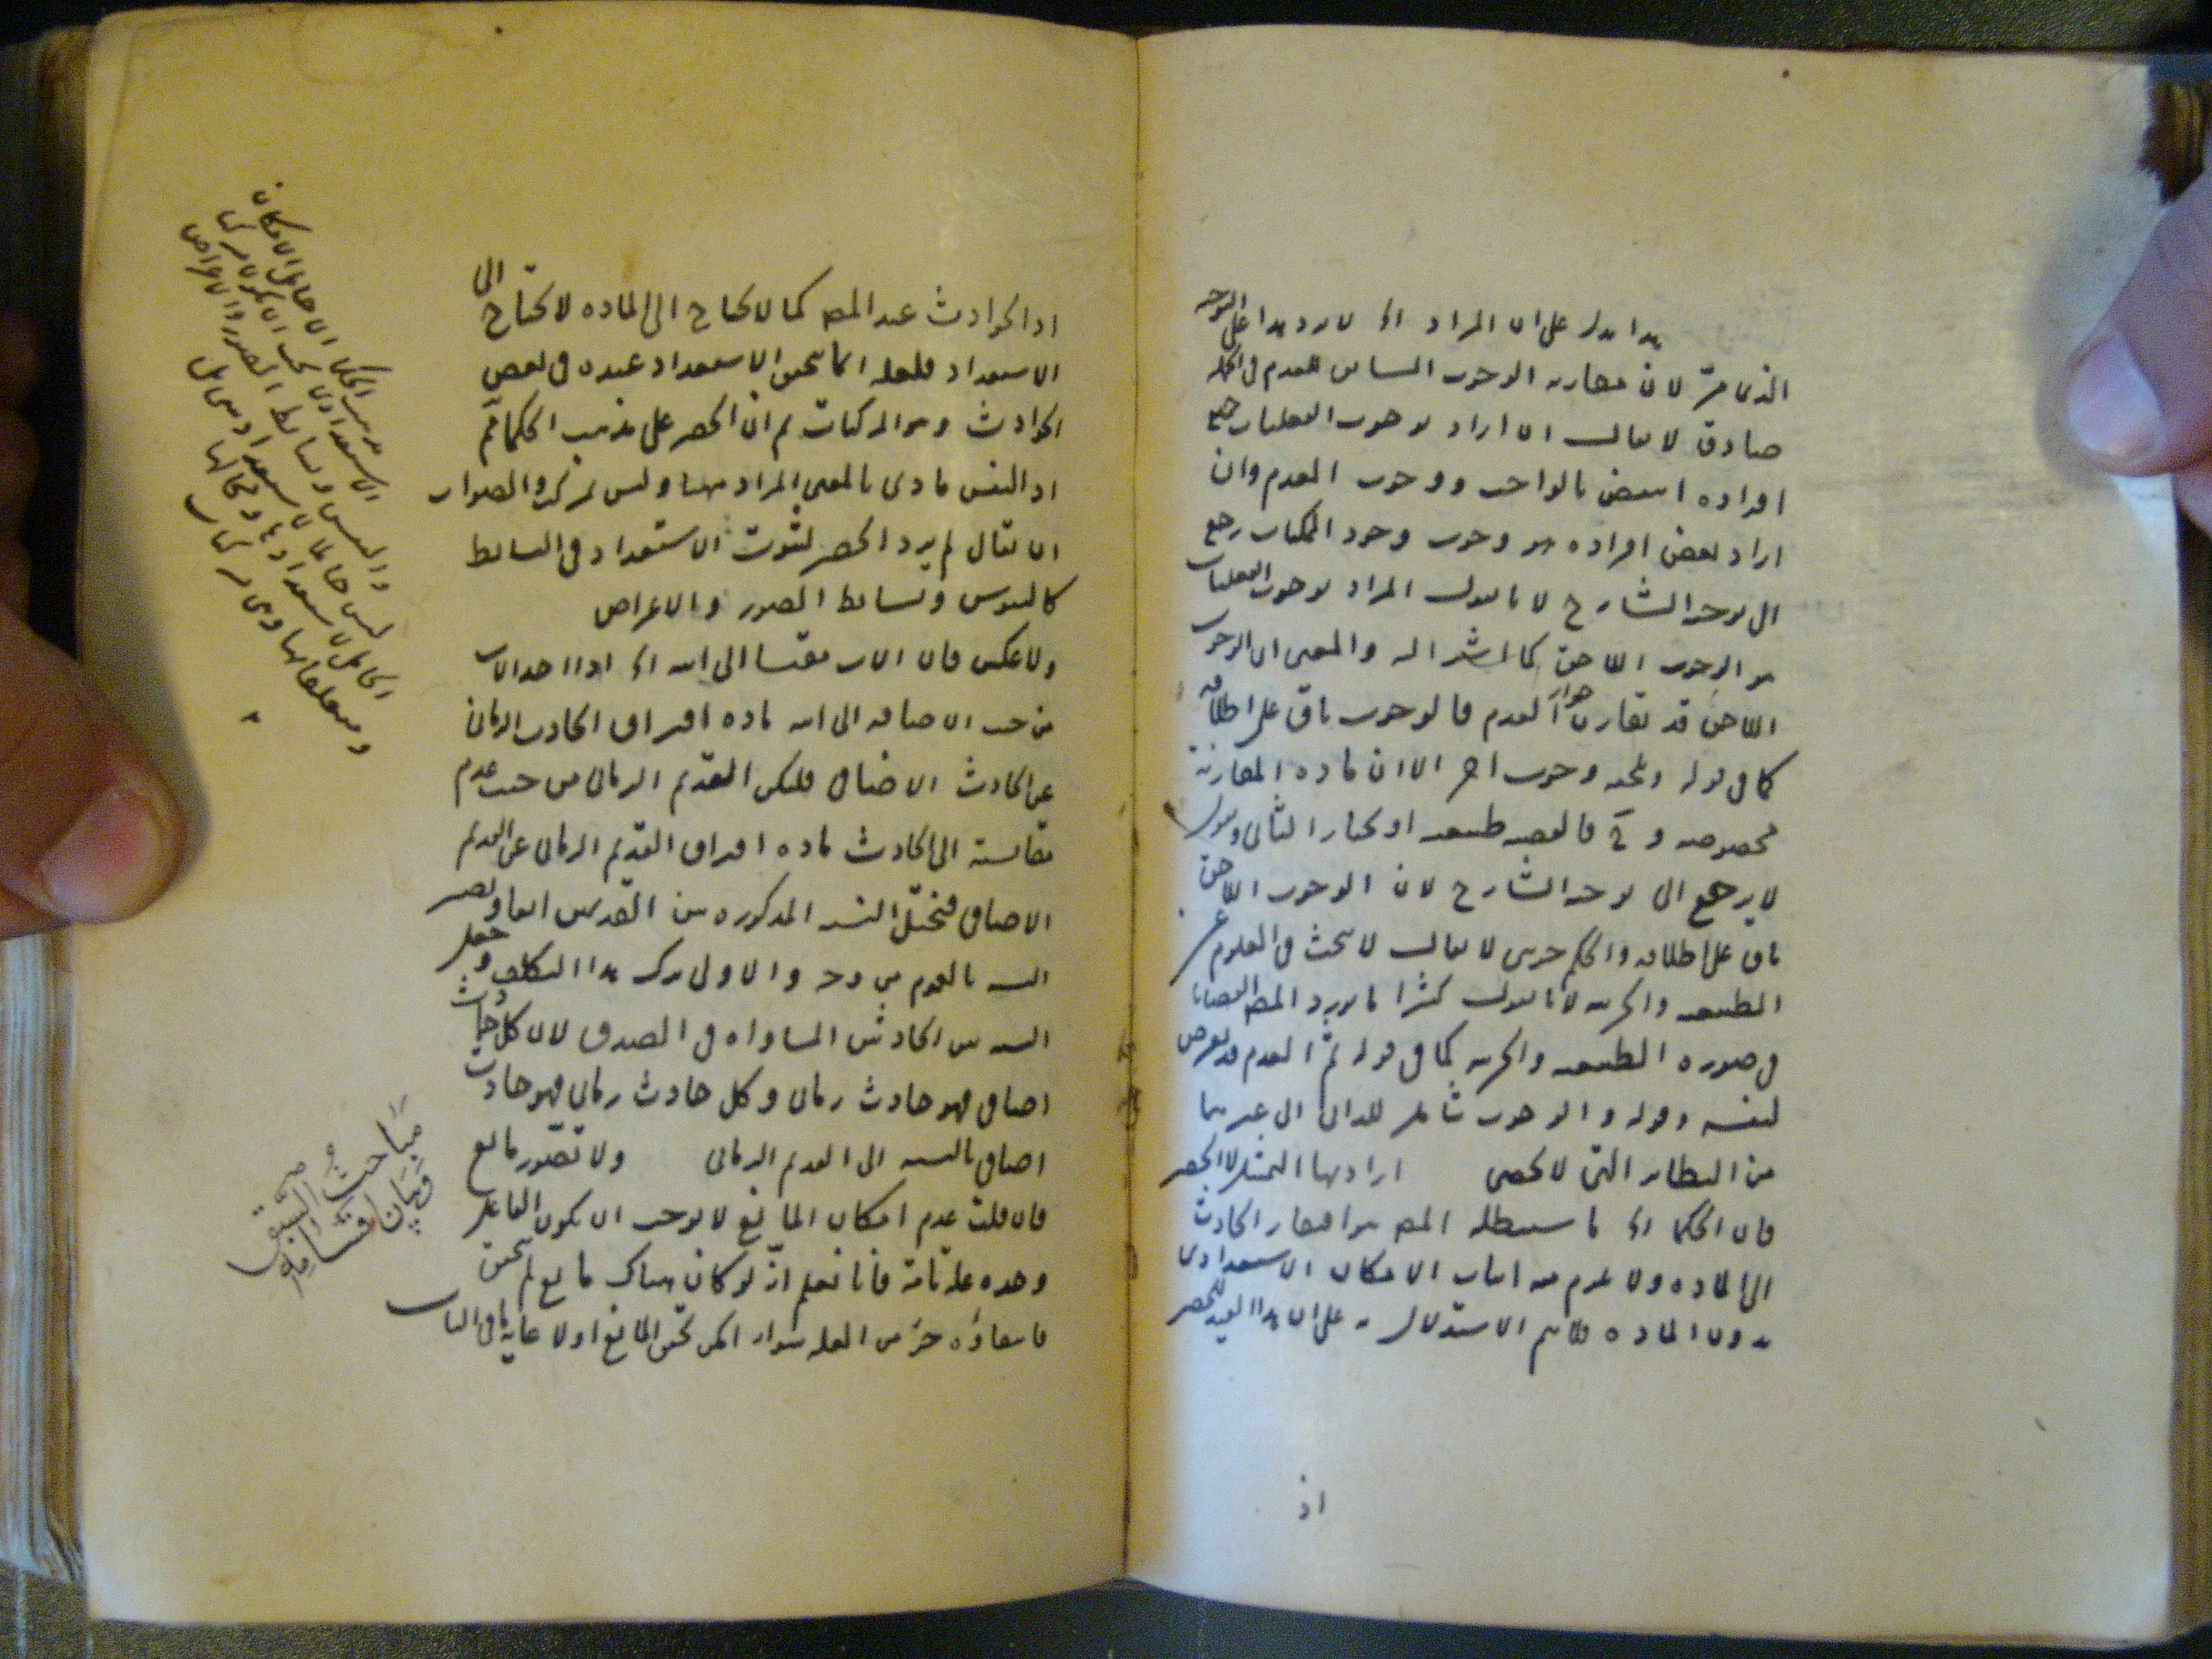 هذا يدل على ان المراد الخ لا يرد هذا على التوجيه
الذى مرّ لان مقارنه الوجوب السابق للعدم فى الجمله
صادق لا يقال ان اراد بوجوب الفعليات جميع
افراده انتقض بالواجب ووجوب العدم وان
اراد بعض افراده هو وجوب وجود الممكنات رجع
الى توجيه الشارح لانا نقول المراد بوجوب الفعليات
هو الوجوب اللاحق كما اشير اليه والمعنى ان الوجوب
اللاحق قد يقارن جواز العدم فالوجوب باق على اطلاقه
كما فى قوله ويلحقه وجوب اخر الا ان ماده المقارنة
مخصوصه و ح فالقضيه طبيعيه او نختار الثانى ونقول
لا يرجع الى توجيه الشارح لان الوجوب اللاحق
باق على اطلاقه والحكم جزئى لا يقال لا يبحث فى العلوم عن
الطبيعيه والجزئيه لانا نقول كثيرا ما يورد المصـ القضايا
فى صوره الطبيعيه والجزئيه كما فى قوله ثمّ العدم قد يعرض
لنفسه وقوله والوجوب شامل للذاتى الى غيرهما
من النظاير التى لا تحصى اراد بها التمثيل لا الحصر
قان الحكما الخ ما سيبطله المصـ هو افتقار الحادث
الى الماده ولا يلزم منه اثبات الامكان الاستعدادى
بدون الماده فلا يتم الاستدلال به على ان هذا القيد للحصر
اذ
اذ الحوادث عند المصـ كما لا يحتاج الى الماده لا يحتاج الى
الاستعداد فلعله انما يتحقق الاستعداد عنده فى بعض
الحوادث وهو المركبات ثم ان الحصر على مذهب الحكما لم يتم
اذ النفس مادى بالمعنى المراد ههنا وليس بمركب والصواب
ان يقال لم يرد الحصر لثبوت الاستعداد فى البسائط
كالنفوس وبسائط الصور والاعراض
ولا عكس فان الاب مقيسا الى ابنه الخ اذا اخذ الاب
من حيث الاضافه الى ابنه ماده افتراق الحادث الزمانى
عن الحادث الاضافى فليكن القديم الزمانى من حيث عدم
مقايسته الى الحادث ماده افتراق القديم الزمانى عن القديم
الاضافى فيختل النسبه المذكوره بين القديمين ايضا ويصير
النسبه بالعموم من وجه والاولى ترك هذا التكلف وجعل
النسبه بين الحادثين المساواه فى الصدق لان كل حادث
اضافى فهو حادث زمانى وكل حادث زمانى فهو حادث
اضافى بالنسبه الى القديم الزمانى ولا تصوّر مانع
فان قلت عدم امكان المانع لا يوجب ان يكون الفاعل
وحده علة تامة فانا نعلم انّه لو كان هناك مانع لم يتحقق
فانتفاؤه جزء من العله سواء امكن تحقق المانع او لا غاية ما فى الباب
مذهب الحكما ان حامل الامكان
الاستعدادى يجب ان يكون مركبا
والنفس وبسائط الصور والاعراض
ليس حاملا لاستعداد شى بل
الحامل لاستعدادها محالها
ومتعلقاتها وهى مركبات
مباحث السبق
وبيان اقسامه